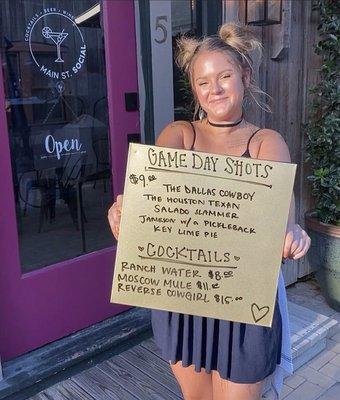 COCKTAILS • BEER • WINE
MAIN ST. SOCIAL
5
Open
GAME DAY SHOTS
$9.00
THE DALLAS COWBOY
THE HOUSTON TEXAN
SALADO SLAMMER
JAMESON w/ a PICKLEBACK
KEY LIME PIE
COCKTAILS
RANCH WATER $8.00
MOSCOW MULE $11.00
REVERSE COWGIRL $15.00